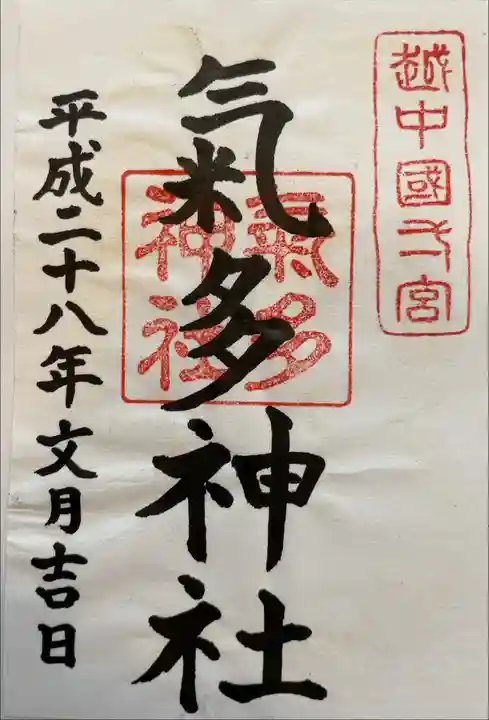 越中國弌宮
氣多神社
氣多
神社
平成二十八年文月吉日